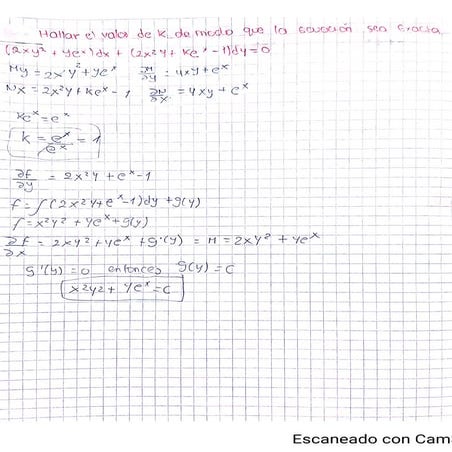 Hallar el valor de K, de modo que la ecuación sea exacta
(2xy² + yeˣ)dx + (2x²y + keˣ - 1)dy = 0
My = 2x y² + yeˣ ∂M/∂y = 4xy + eˣ
Nx = 2x²y + keˣ - 1 ∂N/∂x = 4xy + eˣ
Keˣ = eˣ
k = eˣ/eˣ = 1
∂f/∂y = 2x²y + eˣ - 1
f = ∫(2x²y + eˣ - 1)dy + g(y)
f = x²y² + yeˣ + g(y)
∂f/∂x = 2xy² + yeˣ + g'(y) = M = 2xy² + yeˣ
g'(y) = 0 entonces g(y) = c
x²y2 + yeˣ = c
Escaneado con Cam